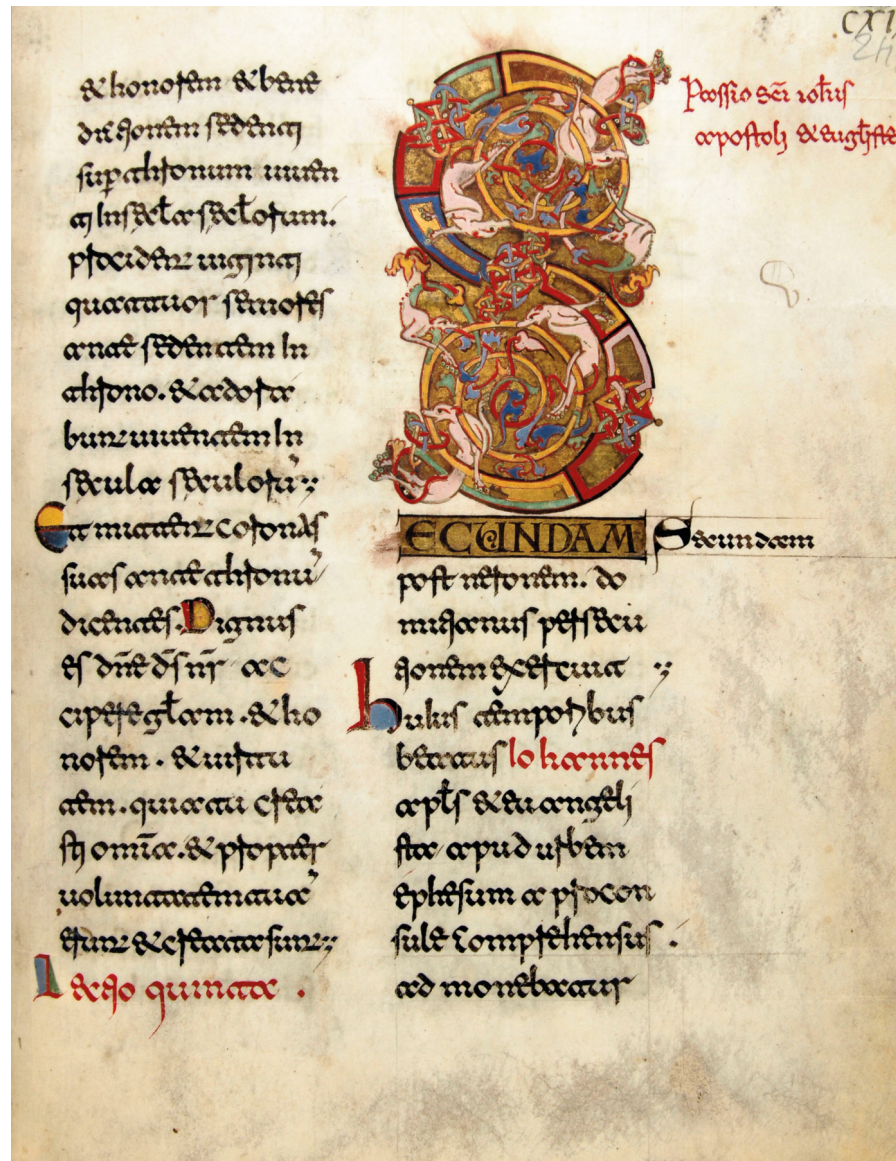 & honorem & bene
dictionem sedenti
sup thronum uiuen
ti In secl̄a secl̄orum.
procident uiginti
quattuor seniores
ante sedentem In
throno. & adora
bunt uiuentem In
secula seculorū
Et mittent coronas
suas ante thronū
dicentes. Dignus
es dn̄e ds̄ nr̄ ac
cipere gl̄am. & ho
norem. & uirtu
tem. quia tu crea
sti om̄ia. & propter
uoluntatem tuā
erunt & creata sunt
Lectio quinta.
CXI
Passio sc̄i ioh̄is
apostoli & eugl̄iste
SECUNDAM Secundam
post neronem. do
mitianus persecu
tionem exercuit
huius temporibus
beatus Iohannes
apl̄s & euangeli
sta apud urbem
ephesum a procon
sule comprehensus.
ad monebatur